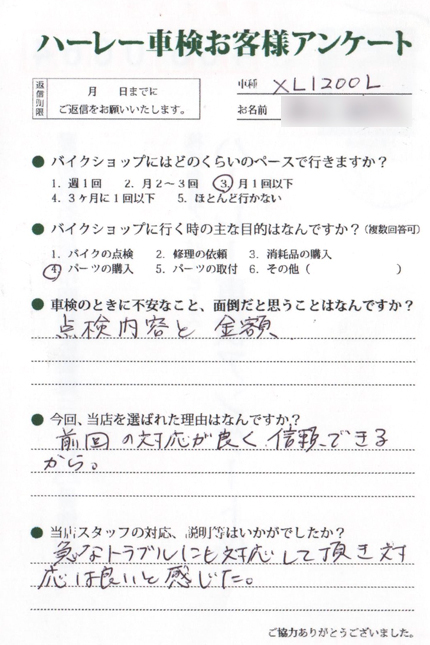 ハーレー車検お客様アンケート
返信期限
月　日までに
ご返信をお願いいたします。
車種 XL1200L
お名前
● バイクショップにはどのくらいのペースで行きますか？
1. 週1回　2. 月2〜3回　3. 月1回以下
4. 3ヶ月に1回以下　5. ほとんど行かない
● バイクショップに行く時の主な目的はなんですか？（複数回答可）
1. バイクの点検　2. 修理の依頼　3. 消耗品の購入
4. パーツの購入　5. パーツの取付　6. その他（　　　）
● 車検のときに不安なこと、面倒だと思うことはなんですか？
点検内容と 金額
● 今回、当店を選ばれた理由はなんですか？
前回の対応が良く信頼できる
から。
● 当店スタッフの対応、説明等はいかがでしたか？
急なトラブルにも対応して頂き対
応は良いと感じた。
ご協力ありがとうございました。